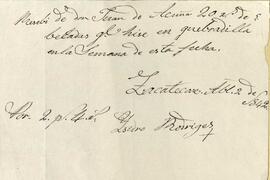 Recibi de don Juan de Acuña 20 rs. de 5
beladas qe. hise en quebradilla
en la Semana de esta fecha.
Zacatecas. Abl. 2 de
Por 2. p. 4. rs. Ysidro Rodrigez